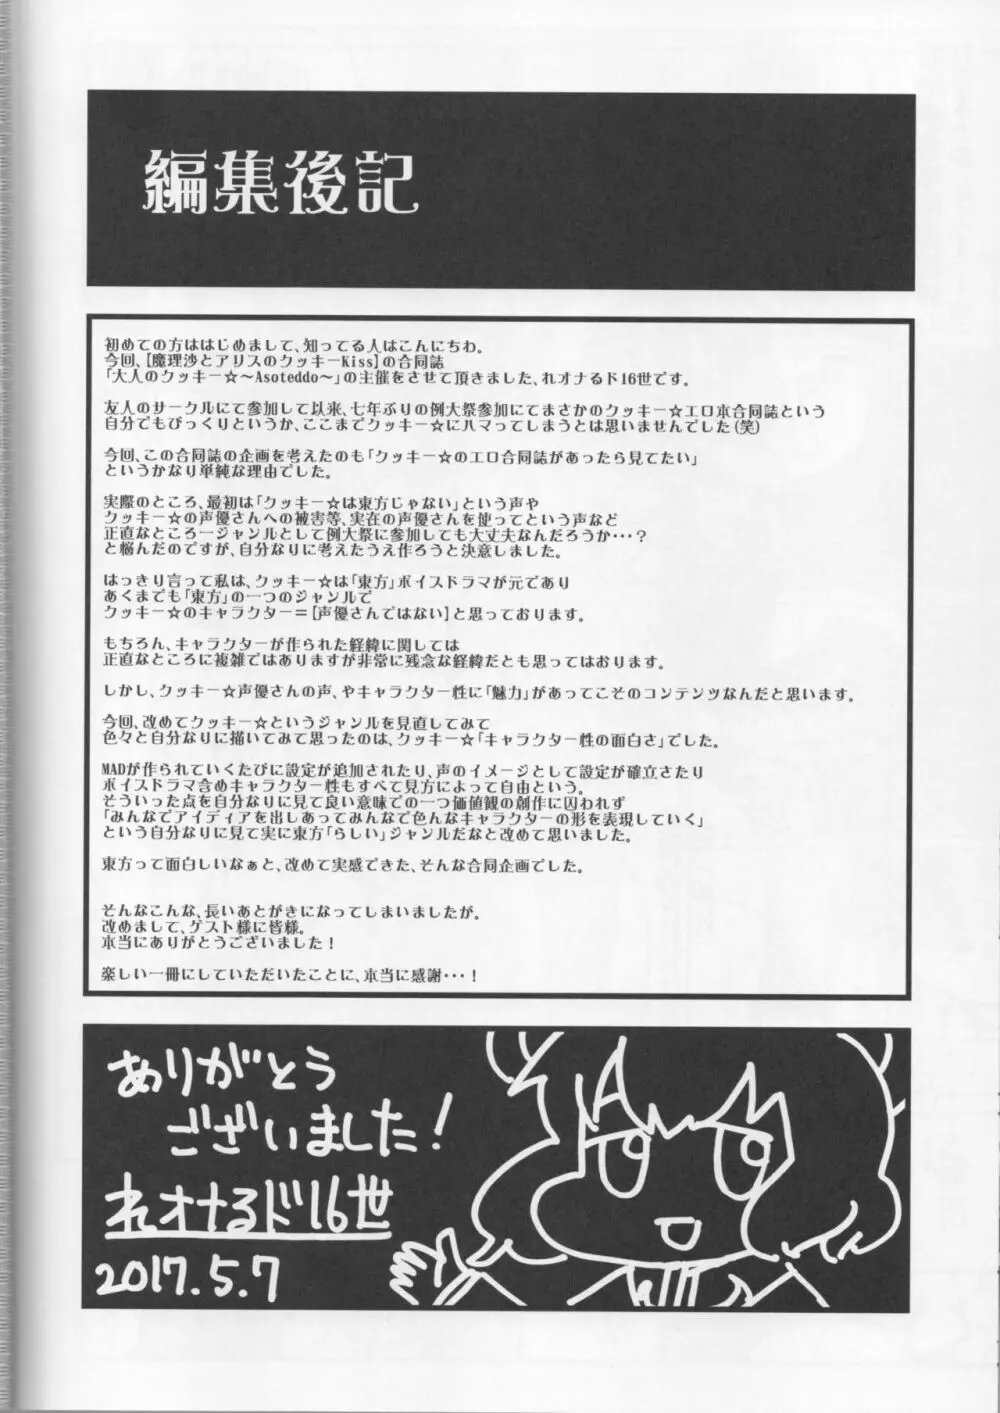 編集後記
初めての方ははじめまして、知ってる人はこんにちわ。
今回、[魔理沙とアリスのクッキーKiss]の合同誌
「大人のクッキー☆～Asoteddo～」の主催をさせて頂きました、れオナるド16世です。
友人のサークルにて参加して以来、七年ぶりの例大祭参加にてまさかのクッキー☆エロ本合同誌という
自分でもびっくりというか、ここまでクッキー☆にハマってしまうとは思いませんでした(笑)
今回、この合同誌の企画を考えたのも「クッキー☆のエロ合同誌があったら見てたい」
というかなり単純な理由でした。
実際のところ、最初は「クッキー☆は東方じゃない」という声や
クッキー☆の声優さんへの被害等、実在の声優さんを使ってという声など
正直なところ一ジャンルとして例大祭に参加しても大丈夫なんだろうか･･･？
と悩んだのですが、自分なりに考えたうえ作ろうと決意しました。
はっきり言って私は、クッキー☆は「東方」ボイスドラマが元であり
あくまでも「東方」の一つのジャンルで
クッキー☆のキャラクター＝[声優さんではない]と思っております。
もちろん、キャラクターが作られた経緯に関しては
正直なところに複雑ではありますが非常に残念な経緯だとも思ってはおります。
しかし、クッキー☆声優さんの声、やキャラクター性に「魅力」があってこそのコンテンツなんだと思います。
今回、改めてクッキー☆というジャンルを見直してみて
色々と自分なりに描いてみて思ったのは、クッキー☆「キャラクター性の面白さ」でした。
MADが作られていくたびに設定が追加されたり、声のイメージとして設定が確立さたり
ボイスドラマ含めキャラクター性もすべて見方によって自由という。
そういった点を自分なりに見て良い意味での一つ価値観の創作に囚われず
「みんなでアイディアを出しあってみんなで色んなキャラクターの形を表現していく」
という自分なりに見て実に東方「らしい」ジャンルだなと改めて思いました。
東方って面白しいなぁと、改めて実感できた、そんな合同企画でした。
そんなこんな、長いあとがきになってしまいましたが。
改めまして、ゲスト様に皆様。
本当にありがとうございました！
楽しい一冊にしていただいたことに、本当に感謝･･･！
ありがとう
ございました！
れオナるド16世
2017.5.7